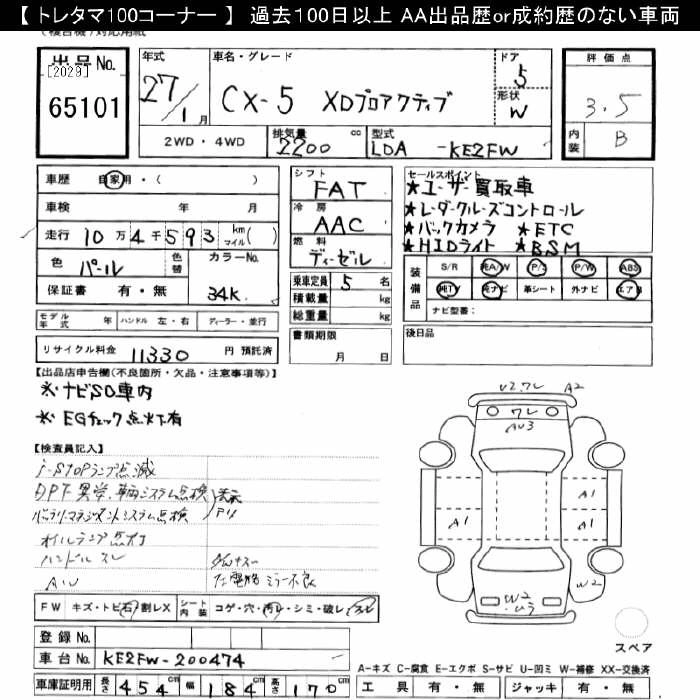 【 トレタマ100コーナー 】 過去100日以上 AA出品歴or成約歴のない車両
出品No.
[2029]
65101
年式
27/1月
車名・グレード
CX-5 XDプロアクティブ
ドア
5
形状
W
評価点
3.5
内装
B
2WD・4WD
排気量
2200 cc
型式
LDA -KE2FW
車歴 自家用・( )
車検 年 月
走行 10万4千593 km マイル( )
色 パール
色替
カラーNo.
34K
保証書 有・無
シフト
FAT
冷房
AAC
燃料
ディーゼル
乗車定員 5 名
積載量 kg
総重量 kg
セールスポイント
★ユーザー買取車
★レーダークルーズコントロール
★バックカメラ ★ETC
★HIDライト ★BSM
装備品
S/R 純A/W P/S P/W ABS
純TV 純ナビ 革シート 外ナビ エアB
ナビ型番:
モデル年式 年 ハンドル 左・右 ディーラー・並行
リサイクル料金 11330 円 預託済
書類期限
月 日
後日品
【出品店申告欄(不良箇所・欠品・注意事項等)】
※ナビSD車内
※EGチェック点灯有
【検査員記入】
i-STOPランプ点滅
DPF異常、車両システム点検 表示
バッテリーマネジメントシステム点検 アリ
オイルランプ点灯
ハンドルスレ
AW
左電格ミラー不良
V2.ワレ A2
ワレ
AU3
A1
A1
A1
W2
W2
U3
FW キズ・トビ石・割レX
シート内装 コゲ・穴・汚レ・シミ・破レ・スレ
スペア
登録No.
車台No. KE2FW-200474
車庫証明用 長さ 454 cm 幅 184 cm 高さ 170 cm
A-キズ C-腐食 E-エクボ S-サビ U-凹ミ W-補修 XX-交換済
工具 有・無 ジャッキ 有・無